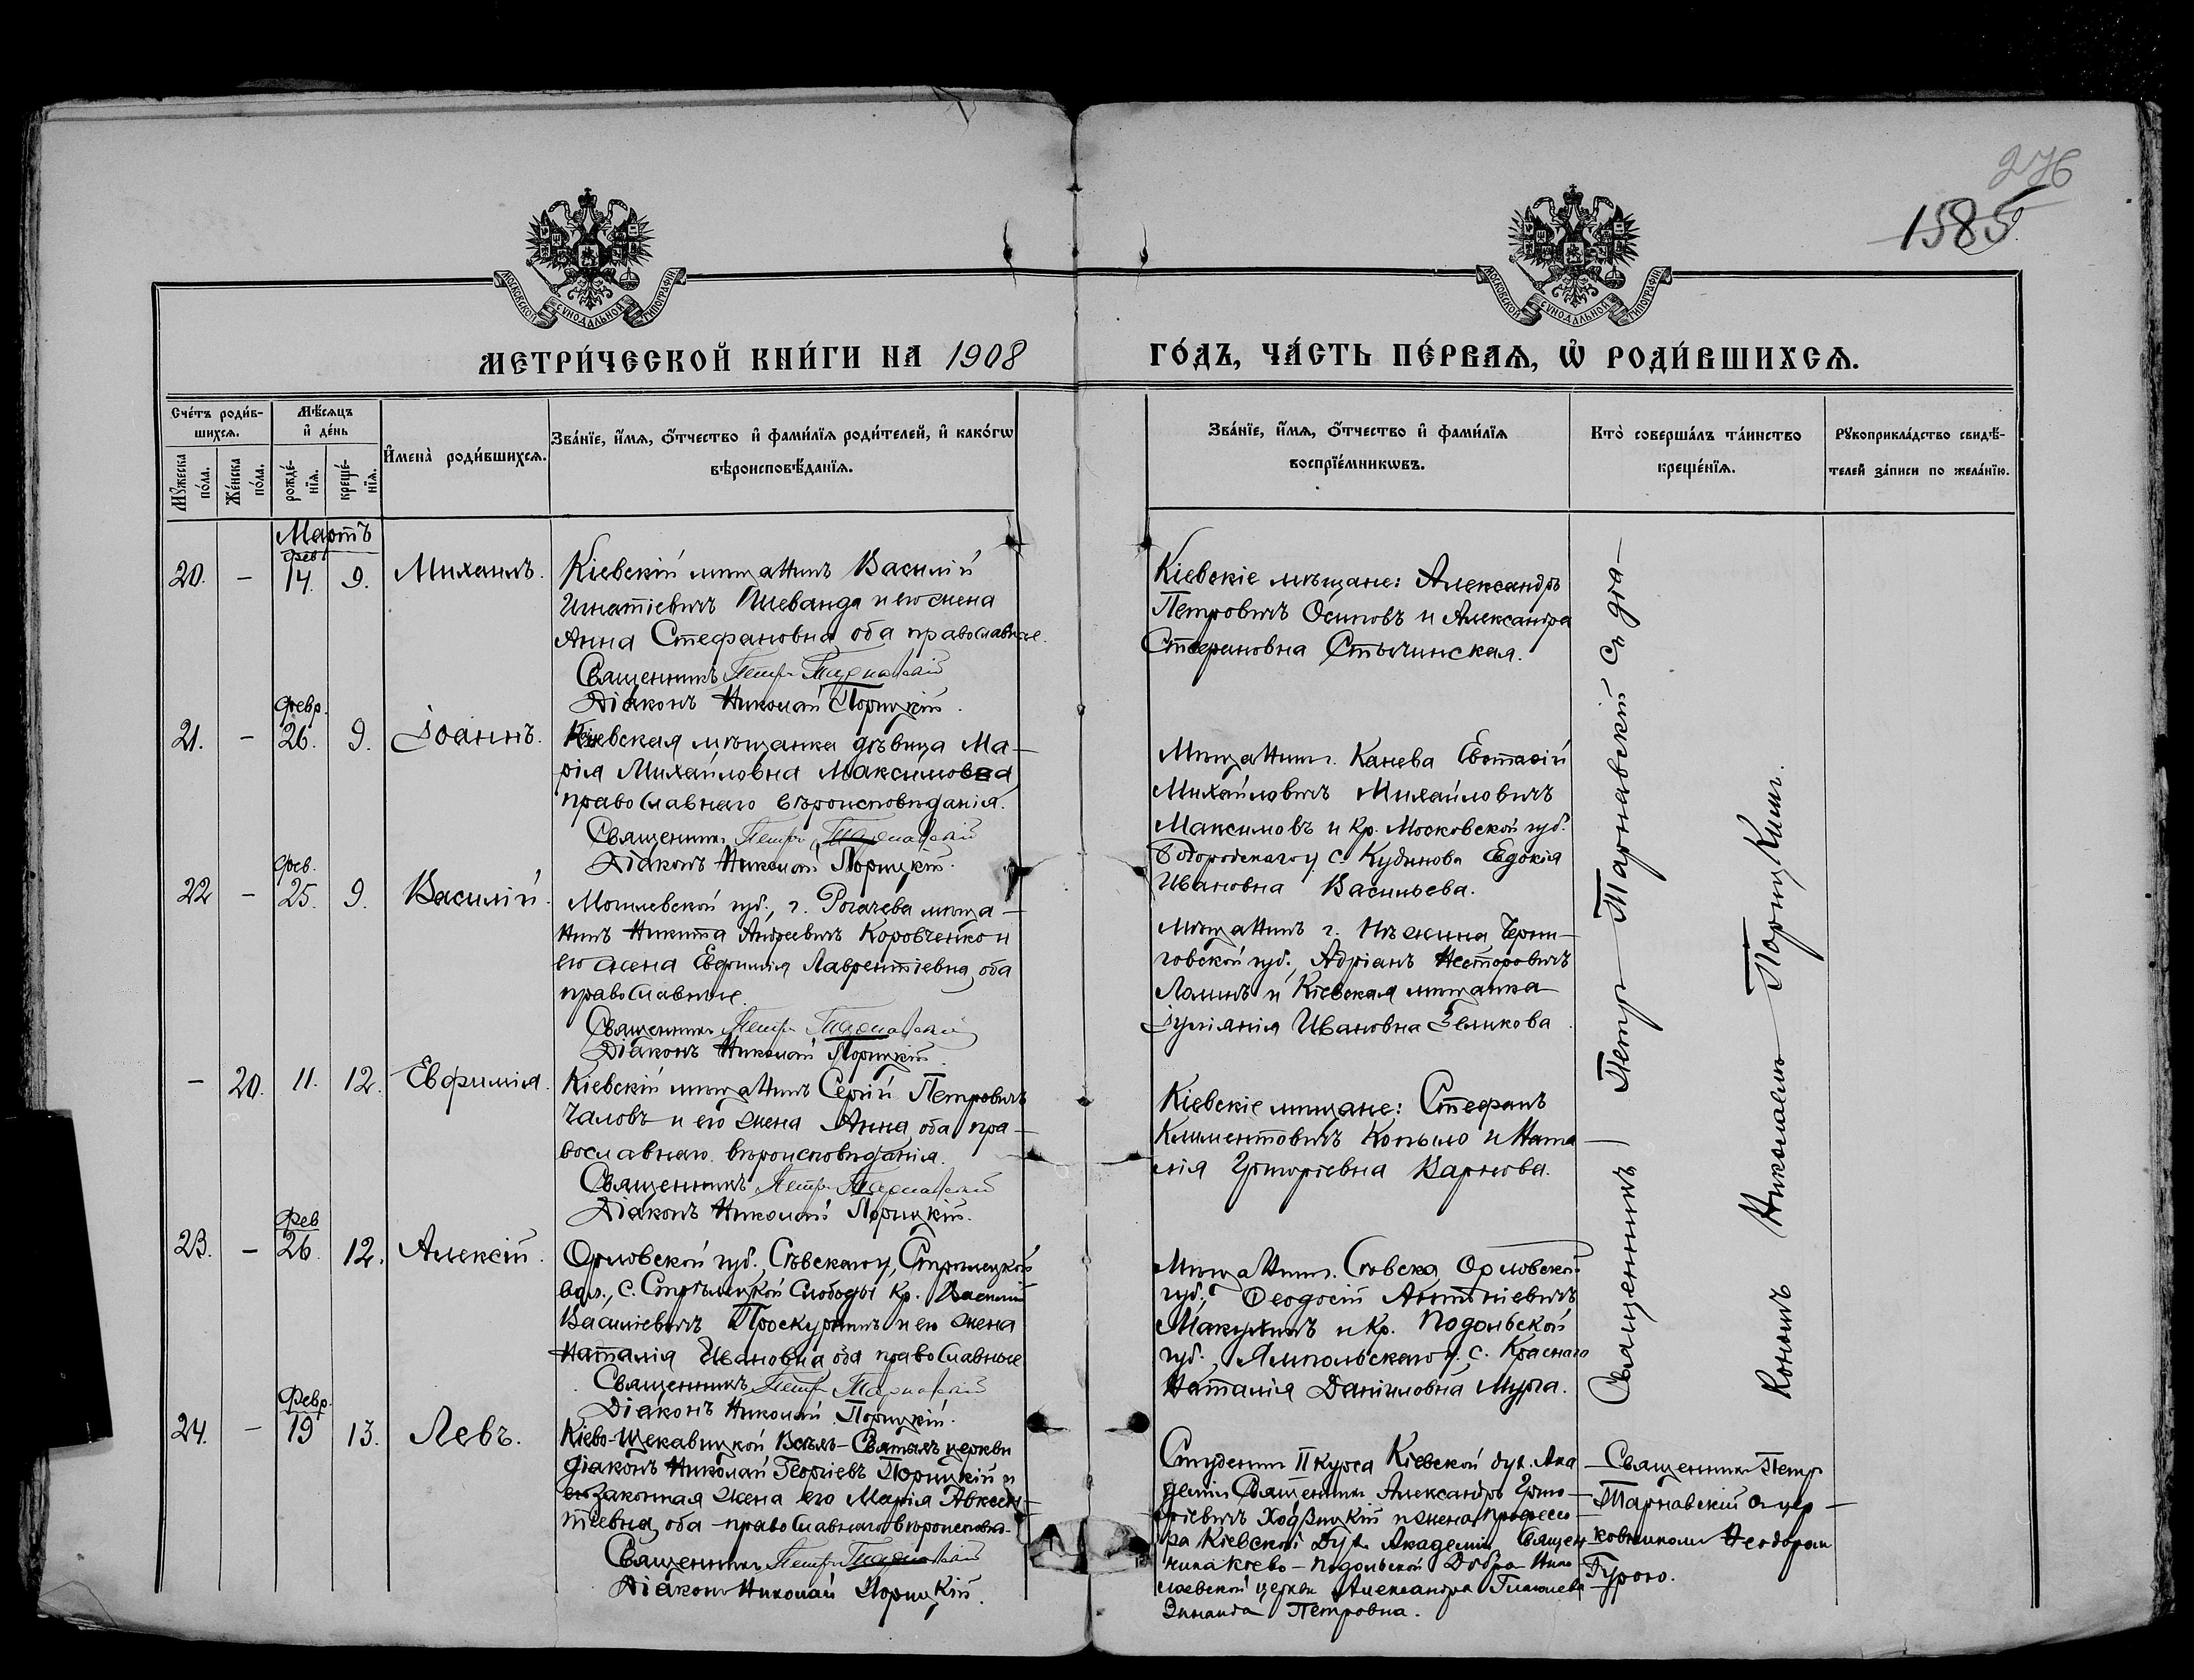 276
1585.
МОСКОВСКОЙ СѴНОДАЛЬНОЙ ТИПОГРАФІИ
МОСКОВСКОЙ СѴНОДАЛЬНОЙ ТИПОГРАФІИ
МЕТРИ́ЧЕСКОЙ КНИ́ГИ НА 1908 ГО́ДЪ, ЧА́СТЬ ПЕ́РВАѦ, Ѡ҆ РОДИ́ВШИХСѦ.
Сче́тъ роди́в-
шихсѧ.
Мѣ́сѧцъ
и҆ де́нь
И҆мена̀ роди́вшихсѧ.
Зва́нїе, и҆́мѧ, ѻ҆́тчество и҆ фами́лїѧ роди́телей, и҆ како́гѡ
вѣроисповѣ́данїѧ.
Мꙋ́жеска
по́ла.
Же́нска
по́ла.
рожде́-
нїѧ.
креще́-
нїѧ.
Зва́нїе, и҆́мѧ, ѻ҆́тчество и҆ фами́лїѧ
воспрїе́мникѡвъ.
Кто̀ соверша́лъ та́инство
креще́нїѧ.
Рꙋкоприкла́дство свидѣ́-
телей за́писи по жела́нїю.
Мартъ
фев
20. – 14. 9. Михаилъ.
Кіевскій мѣщанинъ Василій
Игнатіевичъ Шеванда и его жена
Анна Стефановна оба православные.
Священникъ Петръ Тарнавскій
Діаконъ Николай Порицкій.
Кіевскіе мѣщане: Александръ
Петровичъ Осиповъ и Александра
Стефановна Стычинская.
Февр.
21. – 26. 9. Іоаннъ.
Кіевская мѣщанка дѣвица Ма-
рія Михайловна Максимова
православнаго вѣроисповѣданія.
Священникъ Петръ Тарнавскій
Діаконъ Николай Порицкій.
Мѣщанинъ г. Канева Евстафій
Михайловичъ Михайловичъ
Максимовъ и кр. Московской губ.
Богородскаго у. с. Кудинова Евдокія
Ивановна Васильева.
Фев.
22 – 25. 9. Василій.
Могилевской губ., г. Рогачева мѣща-
нинъ Никита Андреевичъ Коровченко и
его жена Евфимія Лаврентіевна, оба
православные.
Священникъ Петръ Тарнавскій
Діаконъ Николай Порицкій.
Мѣщанинъ г. Нѣжина, Черни-
говской губ., Адріанъ Несторовичъ
Ломинъ и Кіевская мѣщанка
Іуліанія Ивановна
– 20. 11. 12. Евфимія.
Кіевскій мѣщанинъ Сергій Петровичъ
Чаловъ и его жена Анна, оба пра-
вославнаго вѣроисповѣданія.
Священникъ Петръ Тарнавскій
Діаконъ Николай Порицкій.
Кіевскіе мѣщане: Стефанъ
Климентовичъ Копыло и Ната-
лія Григоріевна
Фев
23. – 26. 12. Алексій.
Орловской губ., Сѣвскаго у., Стрѣлецкой
вол., с. Стрѣлецкой Слободы кр. Василій
Василіевичъ Проскуринъ и его жена
Наталія Ивановна, оба православные
Священникъ Петръ Тарнавскій
Діаконъ Николай Порицкій.
Мѣщанинъ г. Сѣвска, Орловской
губ., Ѳеодосій Антоніевичъ
Макухинъ и кр. Подольской
губ., Ямпольскаго у. с. Краснаго
Наталія Даніиловна Мурга.
Священникъ Петръ Тарнавскій съ діа-
кономъ Николаемъ Порицкимъ.
Февр.
24. – 19 13. Левъ.
Кіево-Щекавицкой Всѣхъ-Святыхъ церкви
діаконъ Николай Георгіевъ Порицкій и
законная жена его Марія Авксен-
тіевна, оба православнаго вѣроисповѣд.
Священникъ Петръ Тарнавскій
Діаконъ Николай Порицкій.
Студентъ II курса Кіевской дух. Ака
деміи Священникъ Александръ Григо-
ріевичъ Ходзицкій и жена профессо-
ра Кіевской Дух. Академіи Священ
ника Кіево-Подольской Добро-Нико
лаевской церкви Александра Глаголева
Зинаида Петровна.
Священникъ Петръ
Тарнавскій съ цер-
ковникомъ Ѳеодоромъ